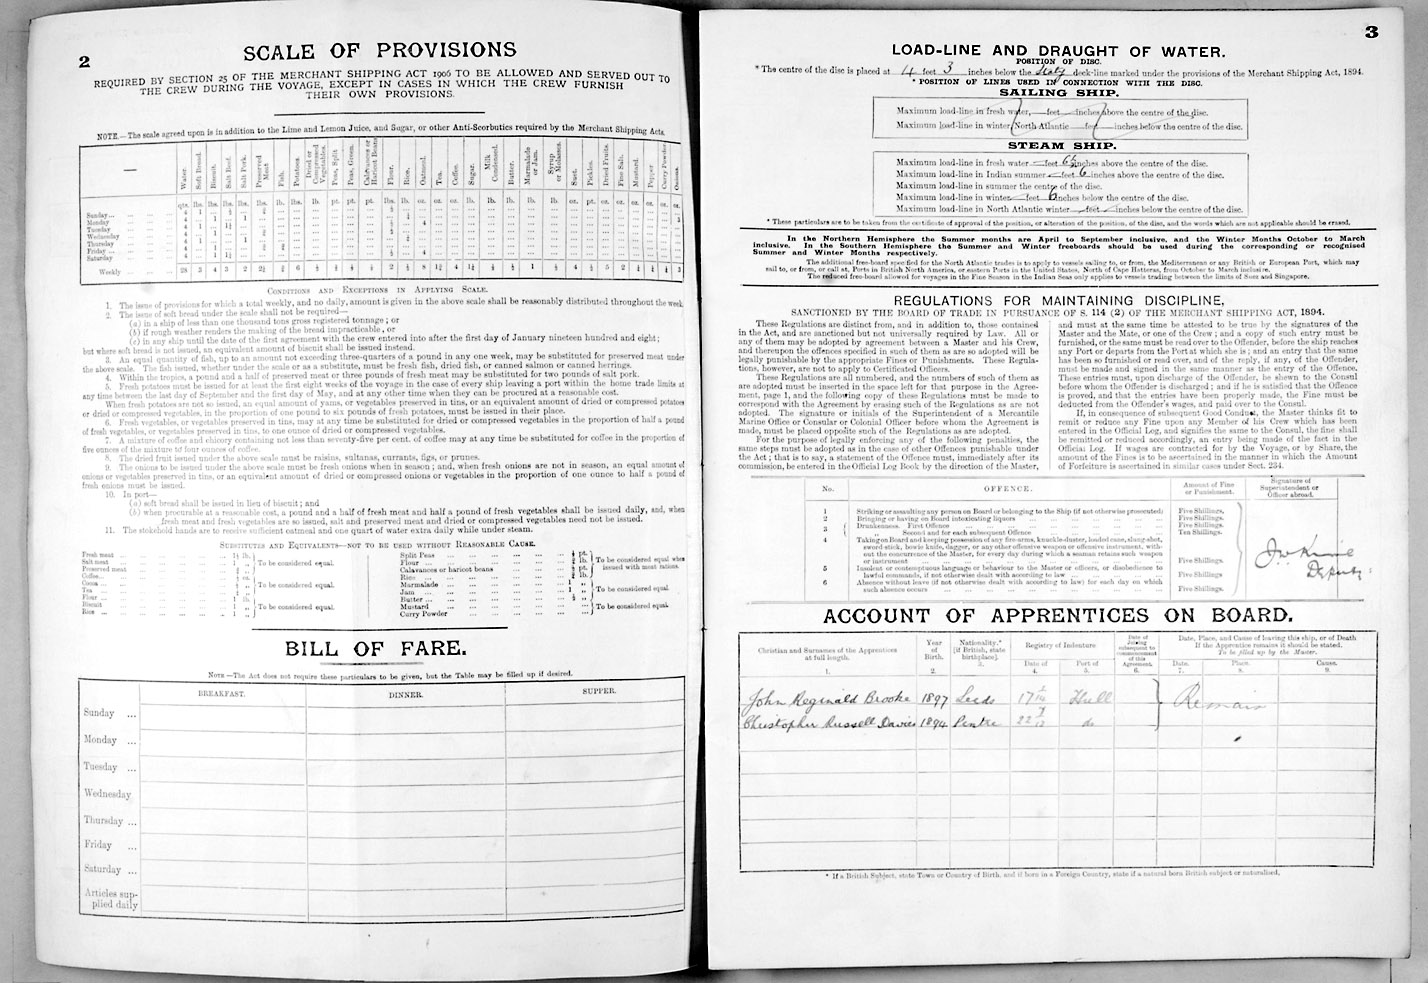 2
SCALE OF PROVISIONS
REQUIRED BY SECTION 25 OF THE MERCHANT SHIPPING ACT 1906 TO BE ALLOWED AND SERVED OUT TO
THE CREW DURING THE VOYAGE, EXCEPT IN CASES IN WHICH THE CREW FURNISH
THEIR OWN PROVISIONS.
NOTE.—The scale agreed upon is in addition to the Lime and Lemon Juice, and Sugar, or other Anti-Scorbutics required by the Merchant Shipping Acts.
Water. Soft Bread. Biscuit. Salt Beef. Salt Pork. Preserved Meat. Fish. Potatoes. Dried or Compressed Vegetables. Peas, Split Peas, Green. Calavances or Haricot Beans Flour. Rice. Oatmeal. Tea. Coffee. Sugar. Milk Condensed. Butter. Marmalade or Jam. Syrup or Molasses. Suet. Pickles. Dried Fruits. Fine Salt. Mustard. Pepper Curry Powder Onions.
qts. lbs. lbs. lbs. lbs. lbs. lbs. lbs. lb. pt. pt. pt. lbs. lb. oz. oz. oz. lb. lb. lb. lb. lb. oz. pt. oz. oz. oz. oz. oz. oz.
Sunday...
Monday
Tuesday
Wednesday
Thursday
Friday...
Saturday
Weekly
CONDITIONS AND EXCEPTIONS IN APPLYING SCALE.
1. The issue of provisions for which a total weekly, and no daily, amount is given in the above scale shall be reasonably distributed throughout the week
2. The issue of soft bread under the scale shall not be required—
(a) in a ship of less than one thousand tons gross registered tonnage; or
(b) if rough weather renders the making of the bread impracticable, or
(c) in any ship until the date of the first agreement with the crew entered into after the first day of January nineteen hundred and eight;
but where soft bread is not issued, an equivalent amount of biscuit shall be issued instead.
3. An equal quantity of fish, up to an amount not exceeding three-quarters of a pound in any one week, may be substituted for preserved meat under
the above scale. The fish issued, whether under the scale or as a substitute, must be fresh fish, dried fish, or canned salmon or canned herrings.
4. Within the tropics, a pound and a half of preserved meat or three pounds of fresh meat may be substituted for two pounds of salt pork.
5. Fresh potatoes must be issued for at least the first eight weeks of the voyage in the case of every ship leaving a port within the home trade limits at
any time between the last day of September and the first day of May, and at any other time when they can be procured at a reasonable cost.
When fresh potatoes are not so issued, an equal amount of yams, or vegetables preserved in tins, or an equivalent amount of dried or compressed potatoes
or dried or compressed vegetables, in the proportion of one pound to six pounds of fresh potatoes, must be issued in their place.
6. Fresh vegetables, or vegetables preserved in tins, may at any time be substituted for dried or compressed vegetables in the proportion of half a pound
of fresh vegetables, or vegetables preserved in tins, to one ounce of dried or compressed vegetables.
7. A mixture of coffee and chicory containing not less than seventy-five per cent. of coffee may at any time be substituted for coffee in the proportion of
five ounces of the mixture to four ounces of coffee.
8. The dried fruit issued under the above scale must be raisins, sultanas, currants, figs, or prunes.
9. The onions to be issued under the above scale must be fresh onions when in season; and, when fresh onions are not in season, an equal amount of
onions or vegetables preserved in tins, or an equivalent amount of dried or compressed onions or vegetables in the proportion of one ounce to half a pound of
fresh onions must be issued.
10. In port—
(a) soft bread shall be issued in lieu of biscuit; and
(b) when procurable at a reasonable cost, a pound and a half of fresh meat and half a pound of fresh vegetables shall be issued daily, and, when
fresh meat and fresh vegetables are so issued, salt and preserved meat and dried or compressed vegetables need not be issued.
11. The stokehold hands are to receive sufficient oatmeal and one quart of water extra daily while under steam.
SUBSTITUTES AND EQUIVALENTS—NOT TO BE USED WITHOUT REASONABLE CAUSE.
Fresh meat
Salt meat
Preserved meat
To be considered equal.
Coffee...
Cocoa ...
Tea
To be considered equal.
Flour ...
Biscuit
Rice ...
To be considered equal.
Split Peas
Flour ...
Calavances or haricot beans
Rice ...
To be considered equal when issued with meat rations.
Marmalade
Jam
Butter ...
To be considered equal.
Mustard
Curry Powder
To be considered equal
BILL OF FARE.
NOTE—The Act does not require these particulars to be given, but the Table may be filled up if desired.
BREAKFAST. DINNER. SUPPER.
Sunday ...
Monday ...
Tuesday ...
Wednesday
Thursday ...
Friday ...
Saturday ...
Articles supplied daily
3
LOAD-LINE AND DRAUGHT OF WATER.
POSITION OF DISC.
* The centre of the disc is placed at 4 feet 3 inches below the deck-line marked under the provisions of the Merchant Shipping Act, 1894.
* POSITION OF LINES USED IN CONNECTION WITH THE DISC.
SAILING SHIP.
Maximum load-line in fresh water, feet inches above the centre of the disc.
Maximum load-line in winter North Atlantic feet inches below the centre of the disc.
STEAM SHIP.
Maximum load-line in fresh water feet 6½ inches above the centre of the disc.
Maximum load-line in Indian summer feet 6 inches above the centre of the disc.
Maximum load-line in summer the centre of the disc.
Maximum load-line in winter feet 6 inches below the centre of the disc.
Maximum load-line in North Atlantic winter feet inches below the centre of the disc.
* These particulars are to be taken from the certificate of approval of the position, or alteration of the position, of the disc, and the words which are not applicable should be erased.
In the Northern Hemisphere the Summer months are April to September inclusive, and the Winter Months October to March
inclusive. In the Southern Hemisphere the Summer and Winter freeboards should be used during the corresponding or recognised
Summer and Winter Months respectively.
The additional free-board specified for the North Atlantic trades is to apply to vessels sailing to, or from, the Mediterranean or any British or European Port, which may
sail to, or from, or call at, Ports in British North America, or eastern Ports in the United States, North of Cape Hatteras, from October to March inclusive.
The reduced free-board allowed for voyages in the Fine Season in the Indian Seas only applies to vessels trading between the limits of Suez and Singapore.
REGULATIONS FOR MAINTAINING DISCIPLINE,
SANCTIONED BY THE BOARD OF TRADE IN PURSUANCE OF S. 114 (2) OF THE MERCHANT SHIPPING ACT, 1894.
These Regulations are distinct from, and in addition to, those contained
in the Act, and are sanctioned but not universally required by Law. All or
any of them may be adopted by agreement between a Master and his Crew,
and thereupon the offences specified in such of them as are so adopted will be
legally punishable by the appropriate Fines or Punishments. These Regula-
tions, however, are not to apply to Certificated Officers.
These Regulations are all numbered, and the numbers of such of them as
are adopted must be inserted in the space left for that purpose in the Agree-
ment, page 1, and the following copy of these Regulations must be made to
correspond with the Agreement by erasing such of the Regulations as are not
adopted. The signature or initials of the Superintendent of a Mercantile
Marine Office or Consular or Colonial Officer before whom the Agreement is
made, must be placed opposite such of the Regulations as are adopted.
For the purpose of legally enforcing any of the following penalties, the
same steps must be adopted as in the case of other Offences punishable under
the Act; that is to say, a statement of the Offence must, immediately after its
commission, be entered in the Official Log Book by the direction of the Master,
and must at the same time be attested to be true by the signatures of the
Master and the Mate, or one of the Crew; and a copy of such entry must be
furnished, or the same must be read over to the Offender, before the ship reaches
any Port or departs from the Port at which she is; and an entry that the same
has been so furnished or read over, and of the reply, if any, of the Offender,
must be made and signed in the same manner as the entry of the Offence.
These entries must, upon discharge of the Offender, be shewn to the Consul
before whom the Offender is discharged; and if he is satisfied that the Offence
is proved, and that the entries have been properly made, the Fine must be
deducted from the Offender's wages, and paid over to the Consul.
If, in consequence of subsequent Good Conduct, the Master thinks fit to
remit or reduce any Fine upon any Member of his Crew which has been
entered in the Official Log, and signifies the same to the Consul, the fine shall
be remitted or reduced accordingly, an entry being made of the fact in the
Official Log. If wages are contracted for by the Voyage, or by Share, the
amount of the Fines is to be ascertained in the manner in which the Amount
of Forfeiture is ascertained in similar cases under Sect. 234.
No. OFFENCE. Amount of Fine or Punishment. Signature of Superintendent or Officer abroad.
1 Striking or assaulting any person on Board or belonging to the Ship (if not otherwise prosecuted) Five Shillings.
2 Bringing or having on Board intoxicating liquors Five Shillings.
3 Drunkenness. First Offence Five Shillings.
" Second and for each subsequent Offence Ten Shillings.
4 Taking on Board and keeping possession of any fire-arms, knuckle-duster, loaded cane, slung-shot,
sword-stick, bowie knife, dagger, or any other offensive weapon or offensive instrument, with-
out the concurrence of the Master, for every day during which a seaman retains such weapon
or instrument Five Shillings.
5 Insolent or contemptuous language or behaviour to the Master or officers, or disobedience to
lawful commands, if not otherwise dealt with according to law Five Shillings.
6 Absence without leave (if not otherwise dealt with according to law) for each day on which
such absence occurs Five Shillings.
Deputy
ACCOUNT OF APPRENTICES ON BOARD.
Christian and Surnames of the Apprentices at full length. 1.
Year of Birth. 2.
Nationality.* [if British, state birthplace]. 3.
Registry of Indenture Date of 4. Port of 5.
Date of Joining subsequent to commencement of this Agreement. 6.
Date, Place, and Cause of leaving this ship, or of Death
If the Apprentice remains it should be stated.
To be filled up by the Master.
Date. 7. Place. 8. Cause. 9.
John Reginald Brooke 1897 Leeds 17 Hull Remain
Christopher Russell Davies 1894 Pentre 22 do
* If a British Subject, state Town or Country of Birth, and if born in a Foreign Country, state if a natural born British subject or naturalised.